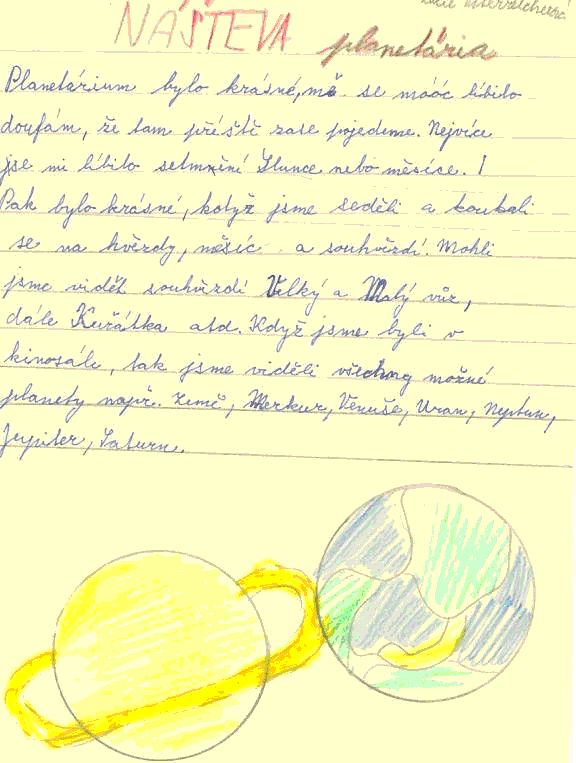 NÁŠTEVA planetária
Planetárium bylo krásné, mě se moóc líbilo
doufám, že tam příště zase pojedeme. Nejvíce
jse mi líbilo setmnění Slunce nebo měsíce. I
Pak bylo krásné, když jsme seděli a koukali
se na hvězdy, měsíc a souhvězdí. Mohli
jsme vidět souhvězdí Velký a Malý vůz,
dále Kuřátka atd. Když jsme byli v
kinosále, tak jsme viděli všechny možné
planety např. Země, Merkur, Venuše, Uran, Neptun,
Jupiter, Saturn.